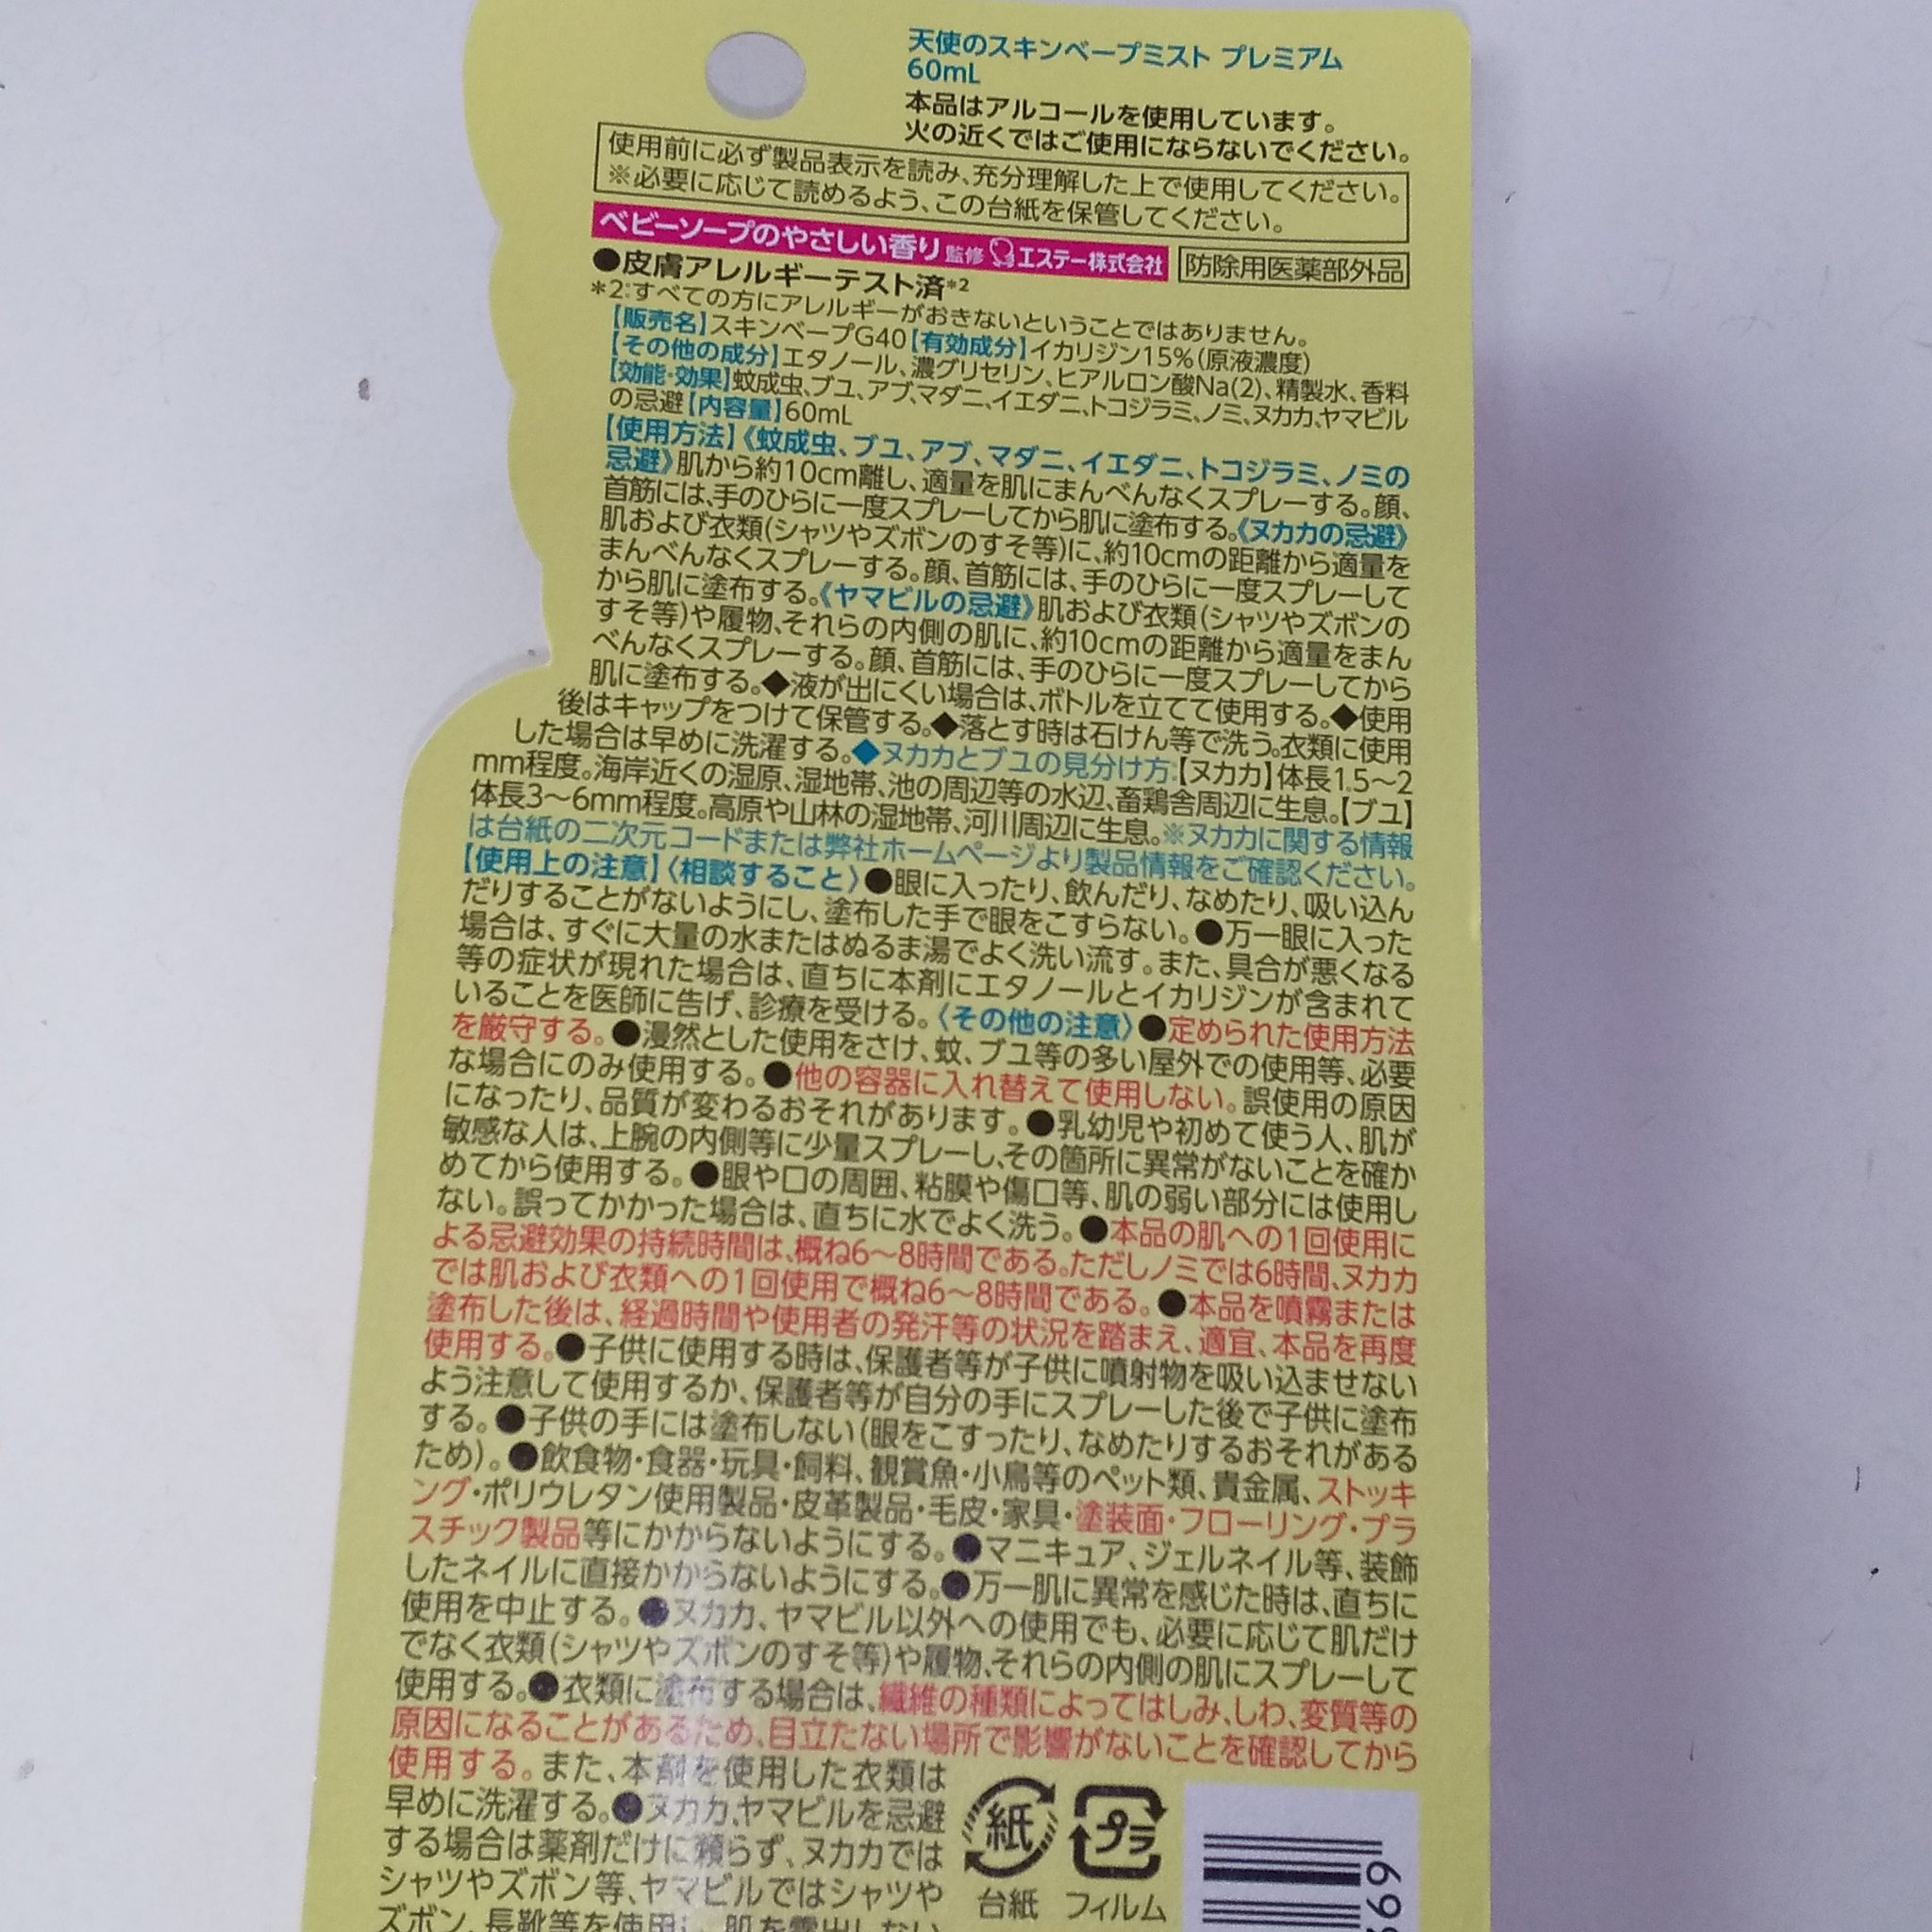 天使のスキンベープミスト プレミアム
60mL
本品はアルコールを使用しています。
火の近くではご使用にならないでください。
使用前に必ず製品表示を読み、充分理解した上で使用してください。
※必要に応じて読めるよう、この台紙を保管してください。
ベビーソープのやさしい香り 監修 エステー株式会社 防除用医薬部外品
●皮膚アレルギーテスト済*2
*2:すべての方にアレルギーがおきないということではありません。
【販売名】スキンベープG40【有効成分】イカリジン15%(原液濃度)
【その他の成分】エタノール、濃グリセリン、ヒアルロン酸Na(2)、精製水、香料
【効能・効果】蚊成虫、ブユ、アブ、マダニ、イエダニ、トコジラミ、ノミ、ヌカカ、ヤマビル
の忌避【内容量】60mL
【使用方法】《蚊成虫、ブユ、アブ、マダニ、イエダニ、トコジラミ、ノミの
忌避》肌から約10cm離し、適量を肌にまんべんなくスプレーする。顔、
首筋には、手のひらに一度スプレーしてから肌に塗布する。《ヌカカの忌避》
肌および衣類(シャツやズボンのすそ等)に、約10cmの距離から適量を
まんべんなくスプレーする。顔、首筋には、手のひらに一度スプレーして
から肌に塗布する。《ヤマビルの忌避》肌および衣類(シャツやズボンの
すそ等)や履物、それらの内側の肌に、約10cmの距離から適量をまん
べんなくスプレーする。顔、首筋には、手のひらに一度スプレーしてから
肌に塗布する。◆液が出にくい場合は、ボトルを立てて使用する。◆使用
後はキャップをつけて保管する。◆落とす時は石けん等で洗う。衣類に使用
した場合は早めに洗濯する。◆ヌカカとブユの見分け方:【ヌカカ】体長1.5〜2
mm程度。海岸近くの湿原、湿地帯、池の周辺等の水辺、畜鶏舎周辺に生息。【ブユ】
体長3〜6mm程度。高原や山林の湿地帯、河川周辺に生息。※ヌカカに関する情報
は台紙の二次元コードまたは弊社ホームページより製品情報をご確認ください。
【使用上の注意】〈相談すること〉●眼に入ったり、飲んだり、なめたり、吸い込ん
だりすることがないようにし、塗布した手で眼をこすらない。●万一眼に入った
場合は、すぐに大量の水またはぬるま湯でよく洗い流す。また、具合が悪くなる
等の症状が現れた場合は、直ちに本剤にエタノールとイカリジンが含まれて
いることを医師に告げ、診療を受ける。〈その他の注意〉●定められた使用方法
を厳守する。●漫然とした使用をさけ、蚊、ブユ等の多い屋外での使用等、必要
な場合にのみ使用する。●他の容器に入れ替えて使用しない。誤使用の原因
になったり、品質が変わるおそれがあります。●乳幼児や初めて使う人、肌が
敏感な人は、上腕の内側等に少量スプレーし、その箇所に異常がないことを確か
めてから使用する。●眼や口の周囲、粘膜や傷口等、肌の弱い部分には使用し
ない。誤ってかかった場合は、直ちに水でよく洗う。●本品の肌への1回使用に
よる忌避効果の持続時間は、概ね6〜8時間である。ただしノミでは6時間、ヌカカ
では肌および衣類への1回使用で概ね6〜8時間である。●本品を噴霧または
塗布した後は、経過時間や使用者の発汗等の状況を踏まえ、適宜、本品を再度
使用する。●子供に使用する時は、保護者等が子供に噴射物を吸い込ませない
よう注意して使用するか、保護者等が自分の手にスプレーした後で子供に塗布
する。●子供の手には塗布しない(眼をこすったり、なめたりするおそれがある
ため)。●飲食物・食器・玩具・飼料、観賞魚・小鳥等のペット類、貴金属、ストッキ
ング・ポリウレタン使用製品・皮革製品・毛皮・家具・塗装面・フローリング・プラ
スチック製品等にかからないようにする。●マニキュア、ジェルネイル等、装飾
したネイルに直接かからないようにする。●万一肌に異常を感じた時は、直ちに
使用を中止する。●ヌカカ、ヤマビル以外への使用でも、必要に応じて肌だけ
でなく衣類(シャツやズボンのすそ等)や履物、それらの内側の肌にスプレーして
使用する。●衣類に塗布する場合は、繊維の種類によってはしみ、しわ、変質等の
原因になることがあるため、目立たない場所で影響がないことを確認してから
使用する。また、本剤を使用した衣類は
早めに洗濯する。●ヌカカ、ヤマビルを忌避
する場合は薬剤だけに頼らず、ヌカカでは
シャツやズボン等、ヤマビルではシャツや
ズボン、長靴等を使用し、肌を露出しない
紙 プラ
台紙 フィルム